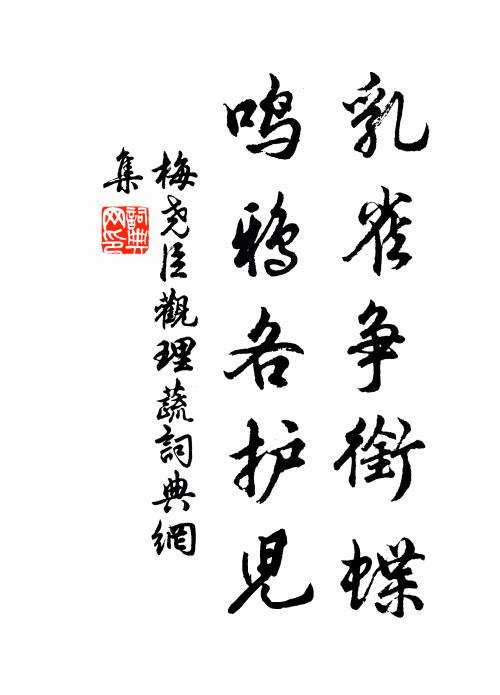 乳雀争銜蝶
鸣鸦各护児
梅尭臣觀理蔬詞典網
集
詞典网印